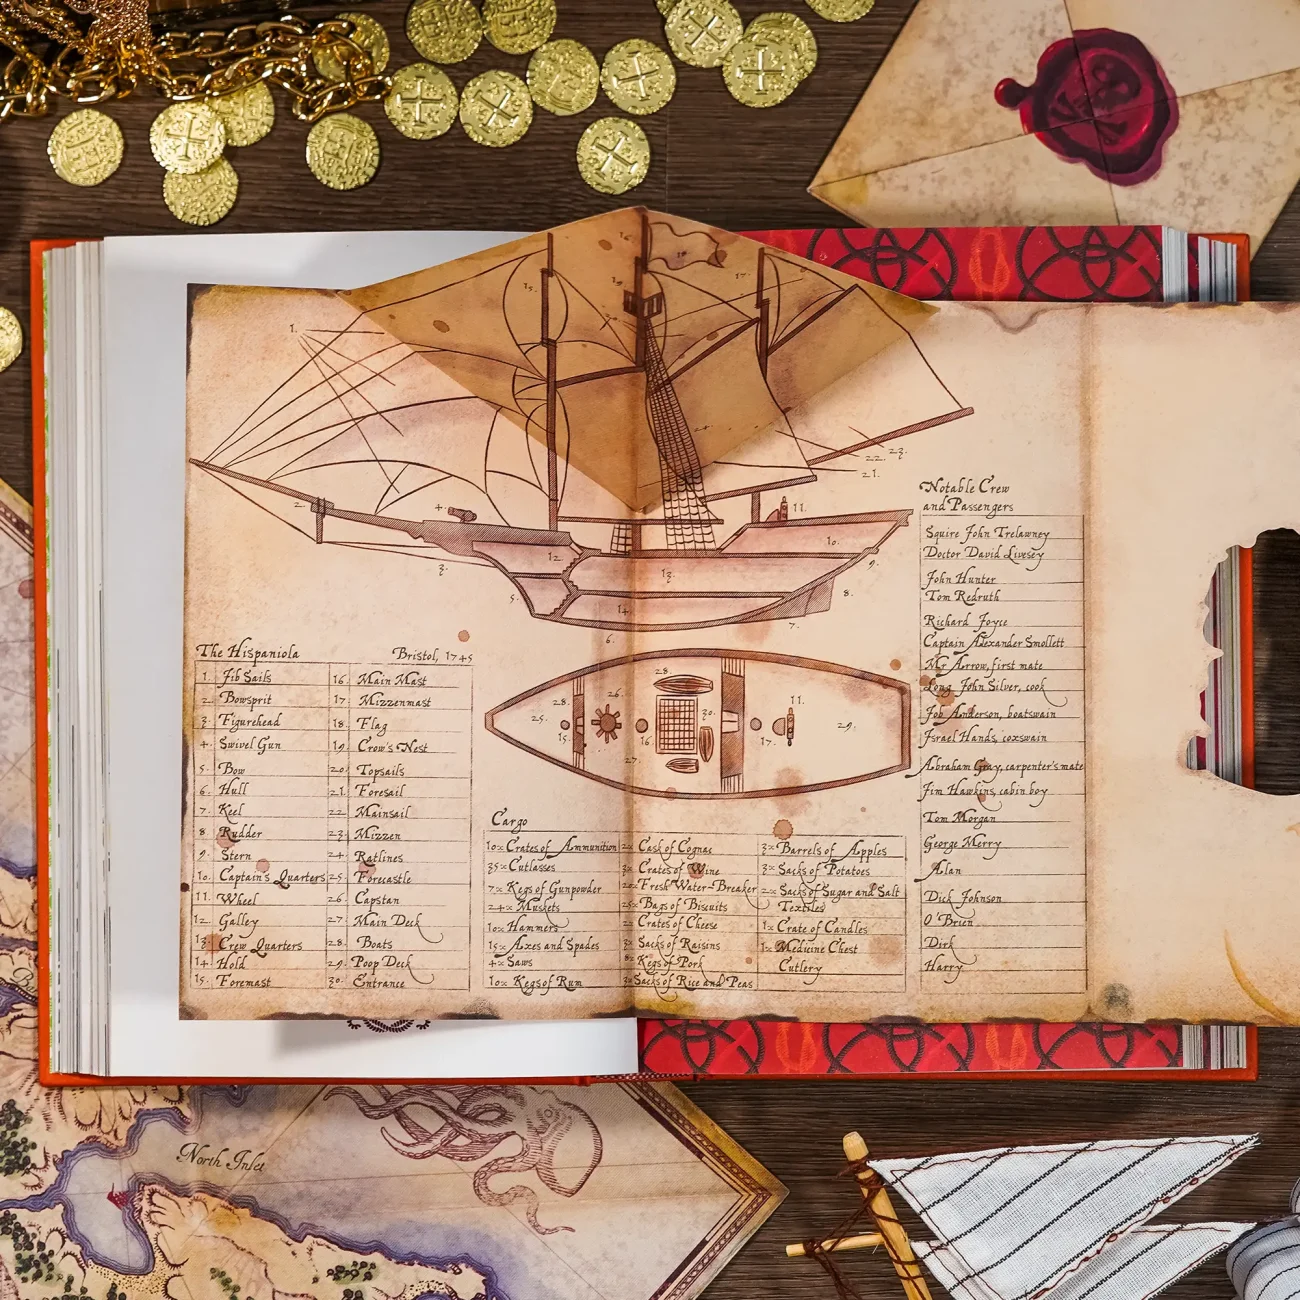 1.
15.
16.
18.
17.
2.
4.
3.
5.
12.
13.
14.
6.
7.
8.
9.
10.
11.
22.
23.
21.
Notable Crew
and Passengers
Squire John Trelawney
Doctor David Livesey
John Hunter
Tom Redruth
Richard Joyce
Captain Alexander Smollett
Mr Arrow, first mate
Long John Silver, cook
Job Anderson, boatswain
Israel Hands, coxswain
Abraham Gray, carpenter's mate
Jim Hawkins, cabin boy
Tom Morgan
George Merry
Alan
Dick Johnson
O'Brien
Dirk
Harry
The Hispaniola Bristol, 1745
1. Jib Sails 16. Main Mast
2. Bowsprit 17. Mizzenmast
3. Figurehead 18. Flag
4. Swivel Gun 19. Crow's Nest
5. Bow 20. Topsails
6. Hull 21. Foresail
7. Keel 22. Mainsail
8. Rudder 23. Mizzen
9. Stern 24. Ratlines
10. Captain's Quarters 25. Forecastle
11. Wheel 26. Capstan
12. Galley 27. Main Deck
13. Crew Quarters 28. Boats
14. Hold 29. Poop Deck
15. Foremast 30. Entrance
25.
28.
15.
26.
27.
16.
28.
30.
17.
11.
29.
Cargo
10x Crates of Ammunition 2x Cask of Cognac 3x Barrels of Apples
35x Cutlasses 3x Crates of Wine 3x Sacks of Potatoes
7x Kegs of Gunpowder 22x Fresh Water-Breaker 2x Sacks of Sugar and Salt
24x Muskets 25x Bags of Biscuits Textiles
10x Hammers 2x Crates of Cheese 1x Crate of Candles
15x Axes and Spades 3x Sacks of Raisins 1x Medicine Chest
4x Saws 8x Kegs of Pork Cutlery
10x Kegs of Rum 3x Sacks of Rice and Peas
North Inlet